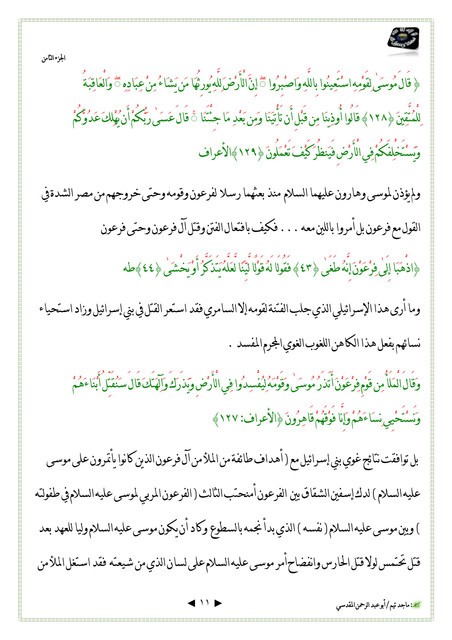 الجزء الثامن
﴿ قَالَ مُوسَىٰ لِقَوْمِهِ اسْتَعِينُوا بِاللَّهِ وَاصْبِرُوا ۖ إِنَّ الْأَرْضَ لِلَّهِ يُورِثُهَا مَن يَشَاءُ مِنْ عِبَادِهِ ۖ وَالْعَاقِبَةُ
لِلْمُتَّقِينَ ﴿١٢٨﴾ قَالُوا أُوذِينَا مِن قَبْلِ أَن تَأْتِيَنَا وَمِن بَعْدِ مَا جِئْتَنَا ۚ قَالَ عَسَىٰ رَبُّكُمْ أَن يُهْلِكَ عَدُوَّكُمْ
وَيَسْتَخْلِفَكُمْ فِي الْأَرْضِ فَيَنظُرَ كَيْفَ تَعْمَلُونَ ﴿١٢٩﴾ الأعراف
ولم يؤذن لموسى وهارون عليهما السلام منذ بعثهما رسلا لفرعون وقومه وحتى خروجهم من مصر الشدة في
القول مع فرعون بل أمروا باللين معه . . . فكيف بافتعال الفتن وقتل آل فرعون وحتى فرعون
﴿اذْهَبَا إِلَىٰ فِرْعَوْنَ إِنَّهُ طَغَىٰ ﴿٤٣﴾ فَقُولَا لَهُ قَوْلًا لَّيِّنًا لَّعَلَّهُ يَتَذَكَّرُ أَوْ يَخْشَىٰ ﴿٤٤﴾ طه
وما أرى هذا الإسرائيلي الذي جلب الفتنة لقومه إلا السامري فقد استعر القتل في بني إسرائيل وزاد استحياء
نسائهم بفعل هذا الكاهن اللغوب الغوي المجرم المفسد .
وَقَالَ الْمَلَأُ مِن قَوْمِ فِرْعَوْنَ أَتَذَرُ مُوسَىٰ وَقَوْمَهُ لِيُفْسِدُوا فِي الْأَرْضِ وَيَذَرَكَ وَآلِهَتَكَ قَالَ سَنُقَتِّلُ أَبْنَاءَهُمْ
وَنَسْتَحْيِي نِسَاءَهُمْ وَإِنَّا فَوْقَهُمْ قَاهِرُونَ ﴿الأعراف: ١٢٧﴾
بل توافقت نتائج غوي بني إسرائيل مع ( أهداف طائفة من الملأ من آل فرعون الذين كانوا يأتمرون على موسى
عليه السلام ) لدك إسفين الشقاق بين الفرعون أمنحتب الثالث ( الفرعون المربي لموسى عليه السلام في طفولته
) وبين موسى عليه السلام ( نفسه ) الذي بدأ نجمه بالسطوع وكاد أن يكون موسى عليه السلام وليا للعهد بعد
قتل تحتمس لولا قتل الحارس وانفضاح أمر موسى عليه السلام على لسان الذي من شيعته فقد استغل الملأ من
١١
ماجد تيم / أبو عبد الرحمن المقدسي